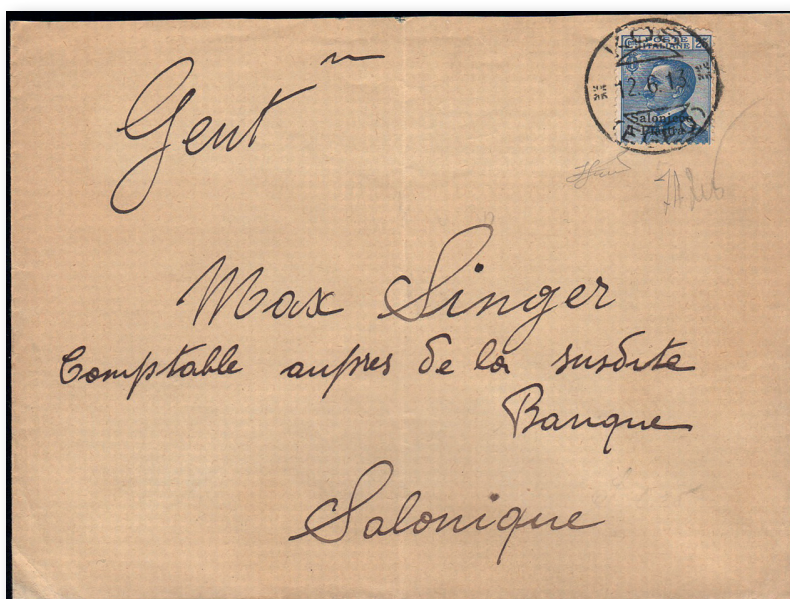 KOS
POSTE ITALIANE 25
12.6.13
Salonicco
1 Piastra
(EGEO)
Gent^mo
Max Singer
Comptable aupres de la susdite
Banque
Salonique